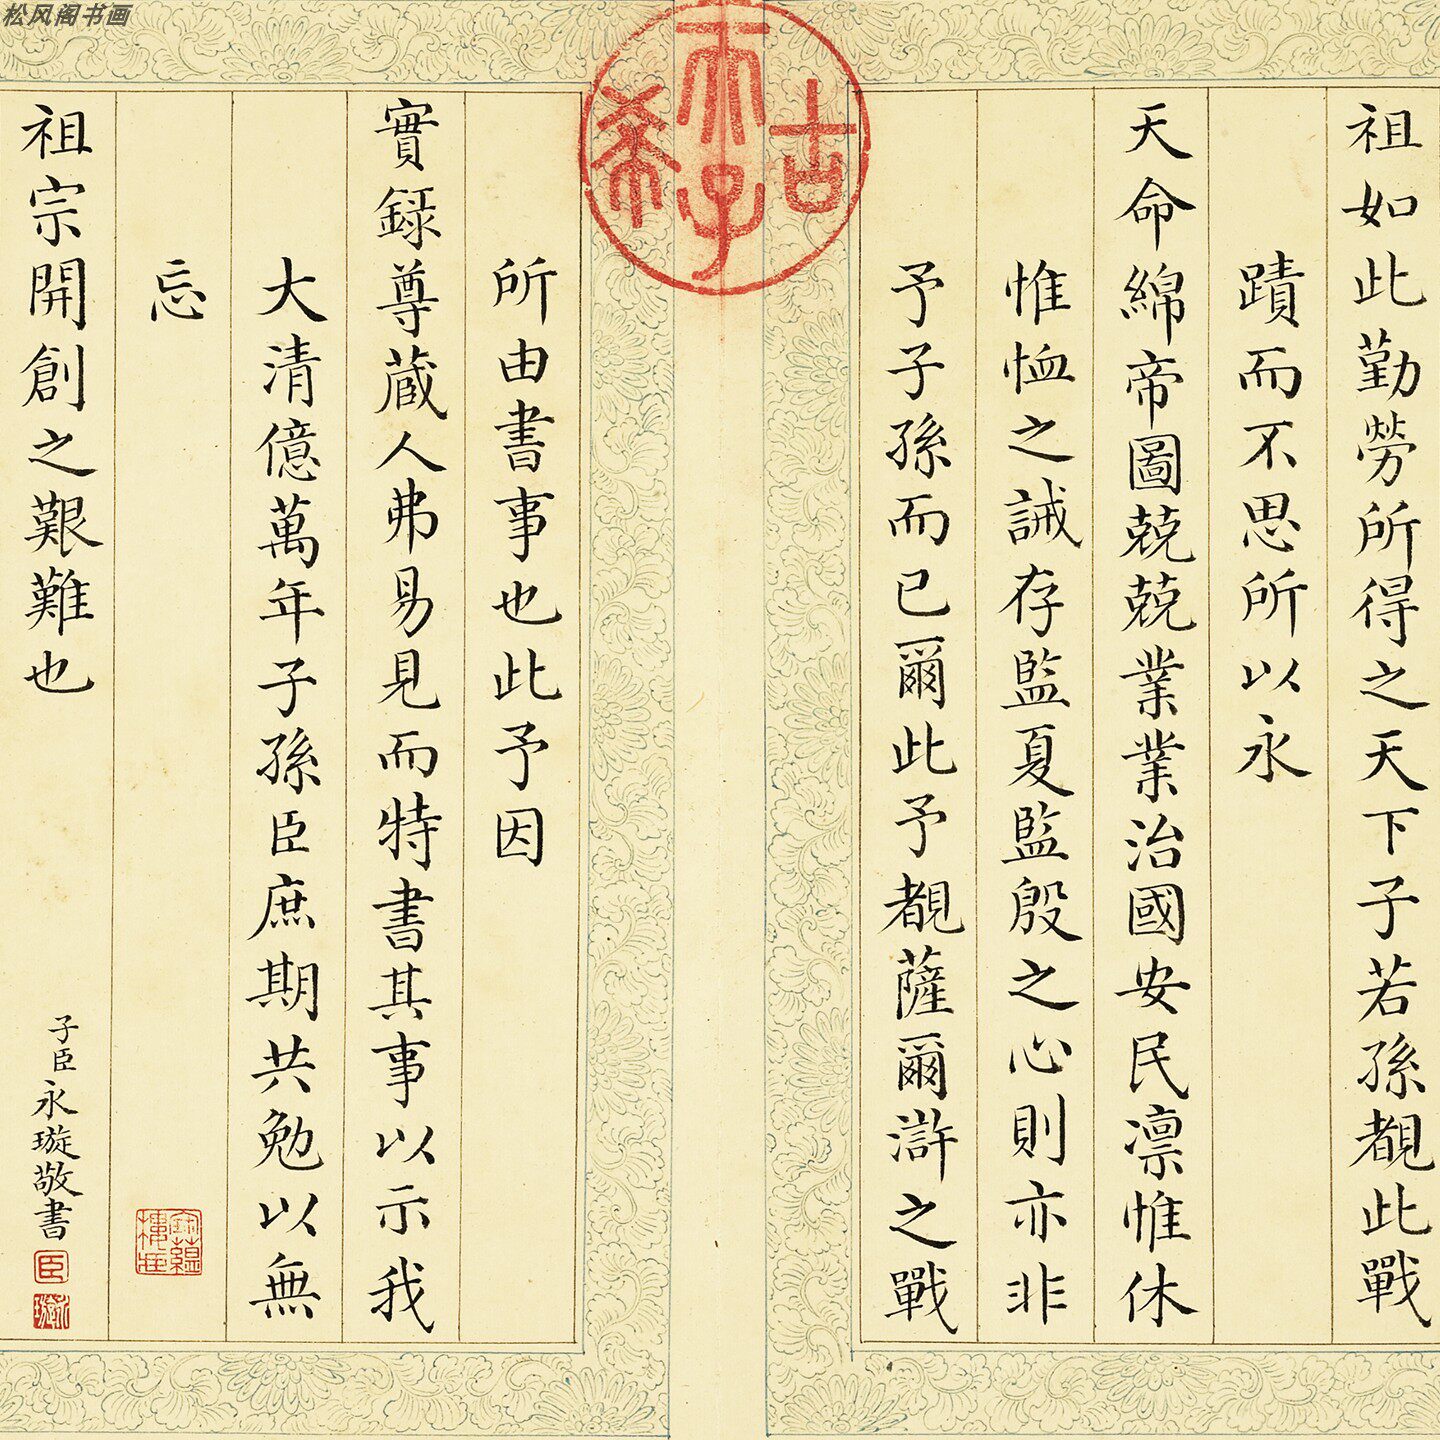 松风阁书画
古
希
天子
祖如此勤勞所得之天下子若孫覩此戰
蹟而不思所以永
天命綿帝圖兢兢業業治國安民凛惟休
惟恤之誡存監夏監殷之心則亦非
予子孫而已爾此予覩薩爾滸之戰
所由書事也此予因
實録尊藏人弗易見而特書其事以示我
大清億萬年子孫臣庶期共勉以無
忘
祖宗開創之艱難也
子臣永璇敬書
臣
永璇